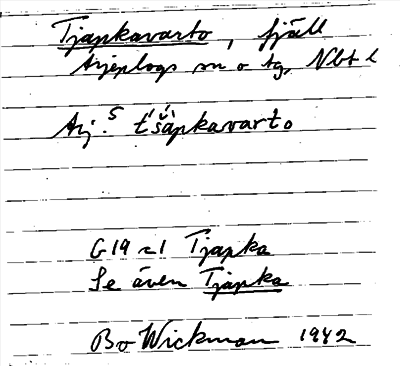 Tjapkavarto, fjäll
Arjeplogs sn o tg, Nbt l
Arj. S t'šápkavarto
G 19 Tjapka
Se även Tjapka
Bo Wickman 1942